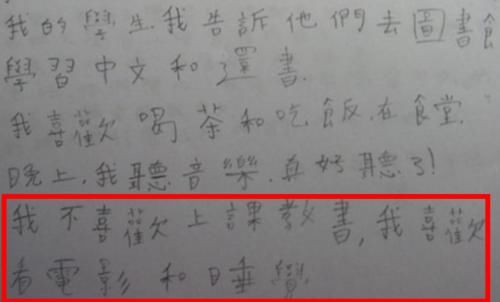 我的學生.我告訴他們去圖書食
學習中文和還書.
我喜歡喝茶和吃飯.在食堂.
晚上,我聽音樂.真好聽了!
我不喜歡上課教書,我喜歡
看電影和睡覺.